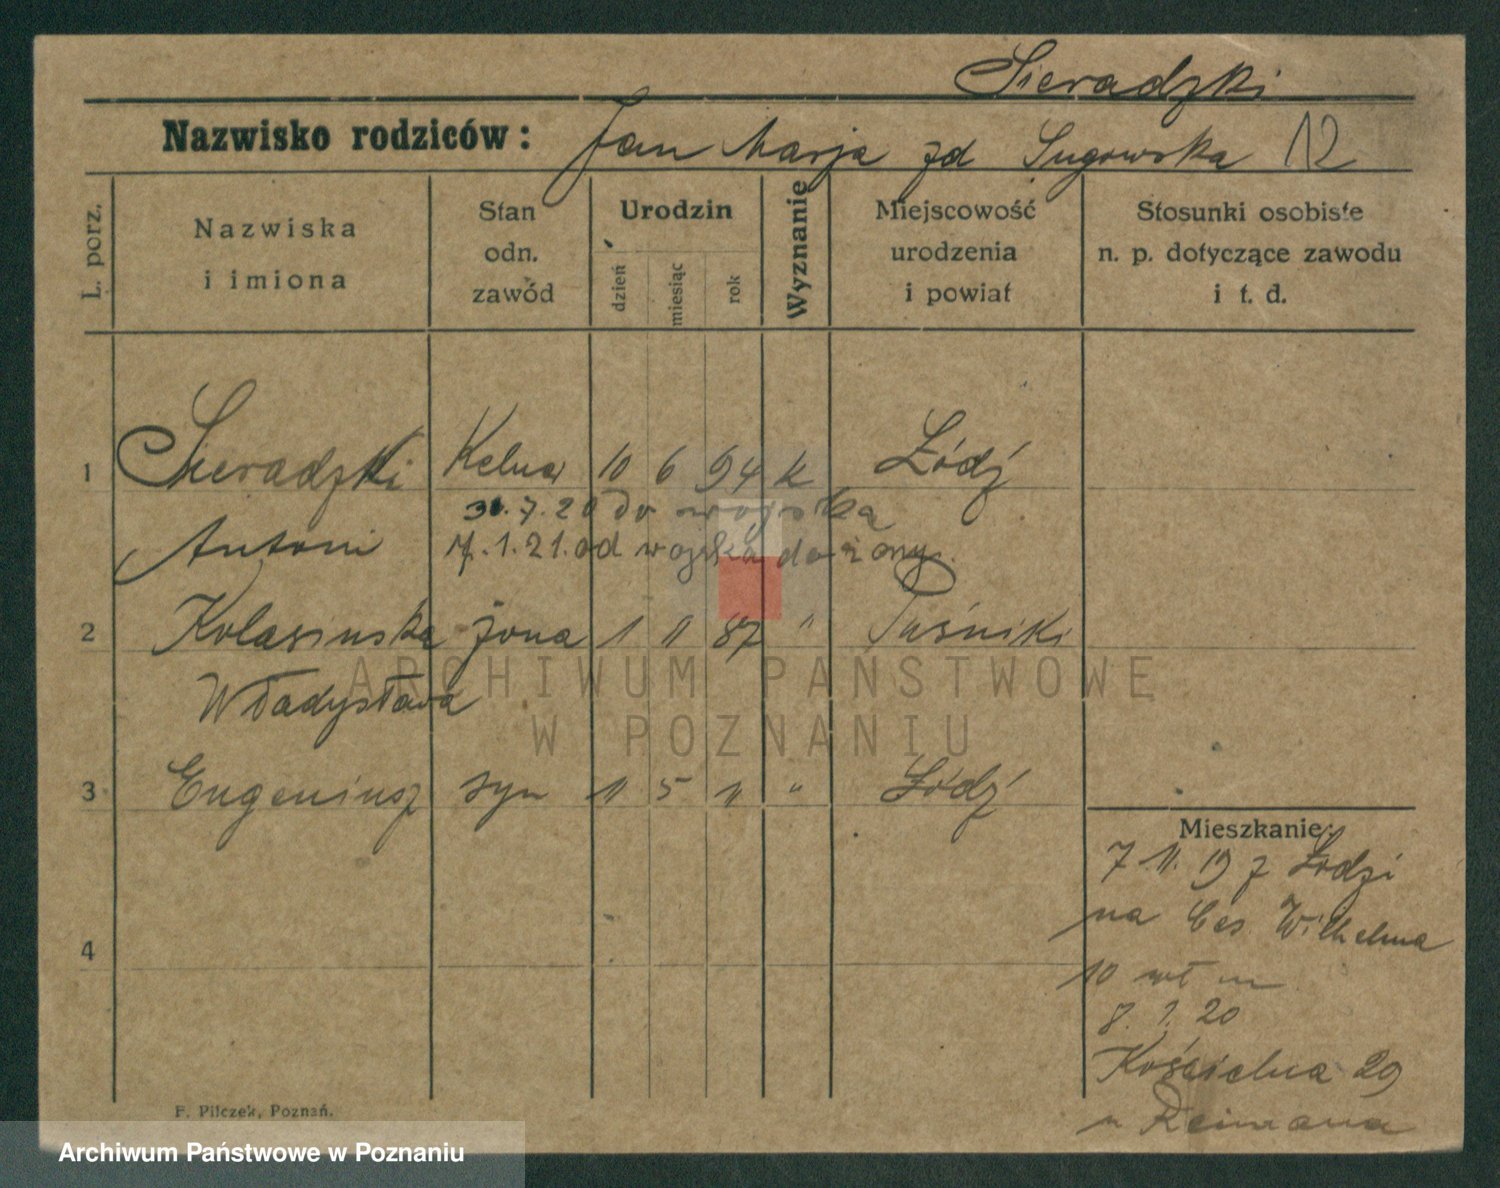 Sieradzki
Nazwisko rodziców: Jan Marja zd Sugowska 12
L. porz.
Nazwiska i imiona
Stan odn. zawód
Urodzin
dzień
miesiąc
rok
Wyznanie
Miejscowość urodzenia i powiat
Stosunki osobiste n. p. dotyczące zawodu i t. d.
1 Sieradzki Kelner 10 6 94 k Łódź
31.7.20 do wojska
Antoni 17.1.21. od wojska do żony.
2 Kolasinska żona 1 11 87 " Puśniki
Władysława
3 Eugeniusz syn 11 5 11 " Łódź
Mieszkanie:
7 11. 19 z Łodzi
na Ces Wilhelma
4
10 wł m
8. 1. 20
Kościelna 29
u Reimana
F. Pilczek, Poznań.
ARCHIWUM PAŃSTWOWE
W POZNANIU
Archiwum Państwowe w Poznaniu